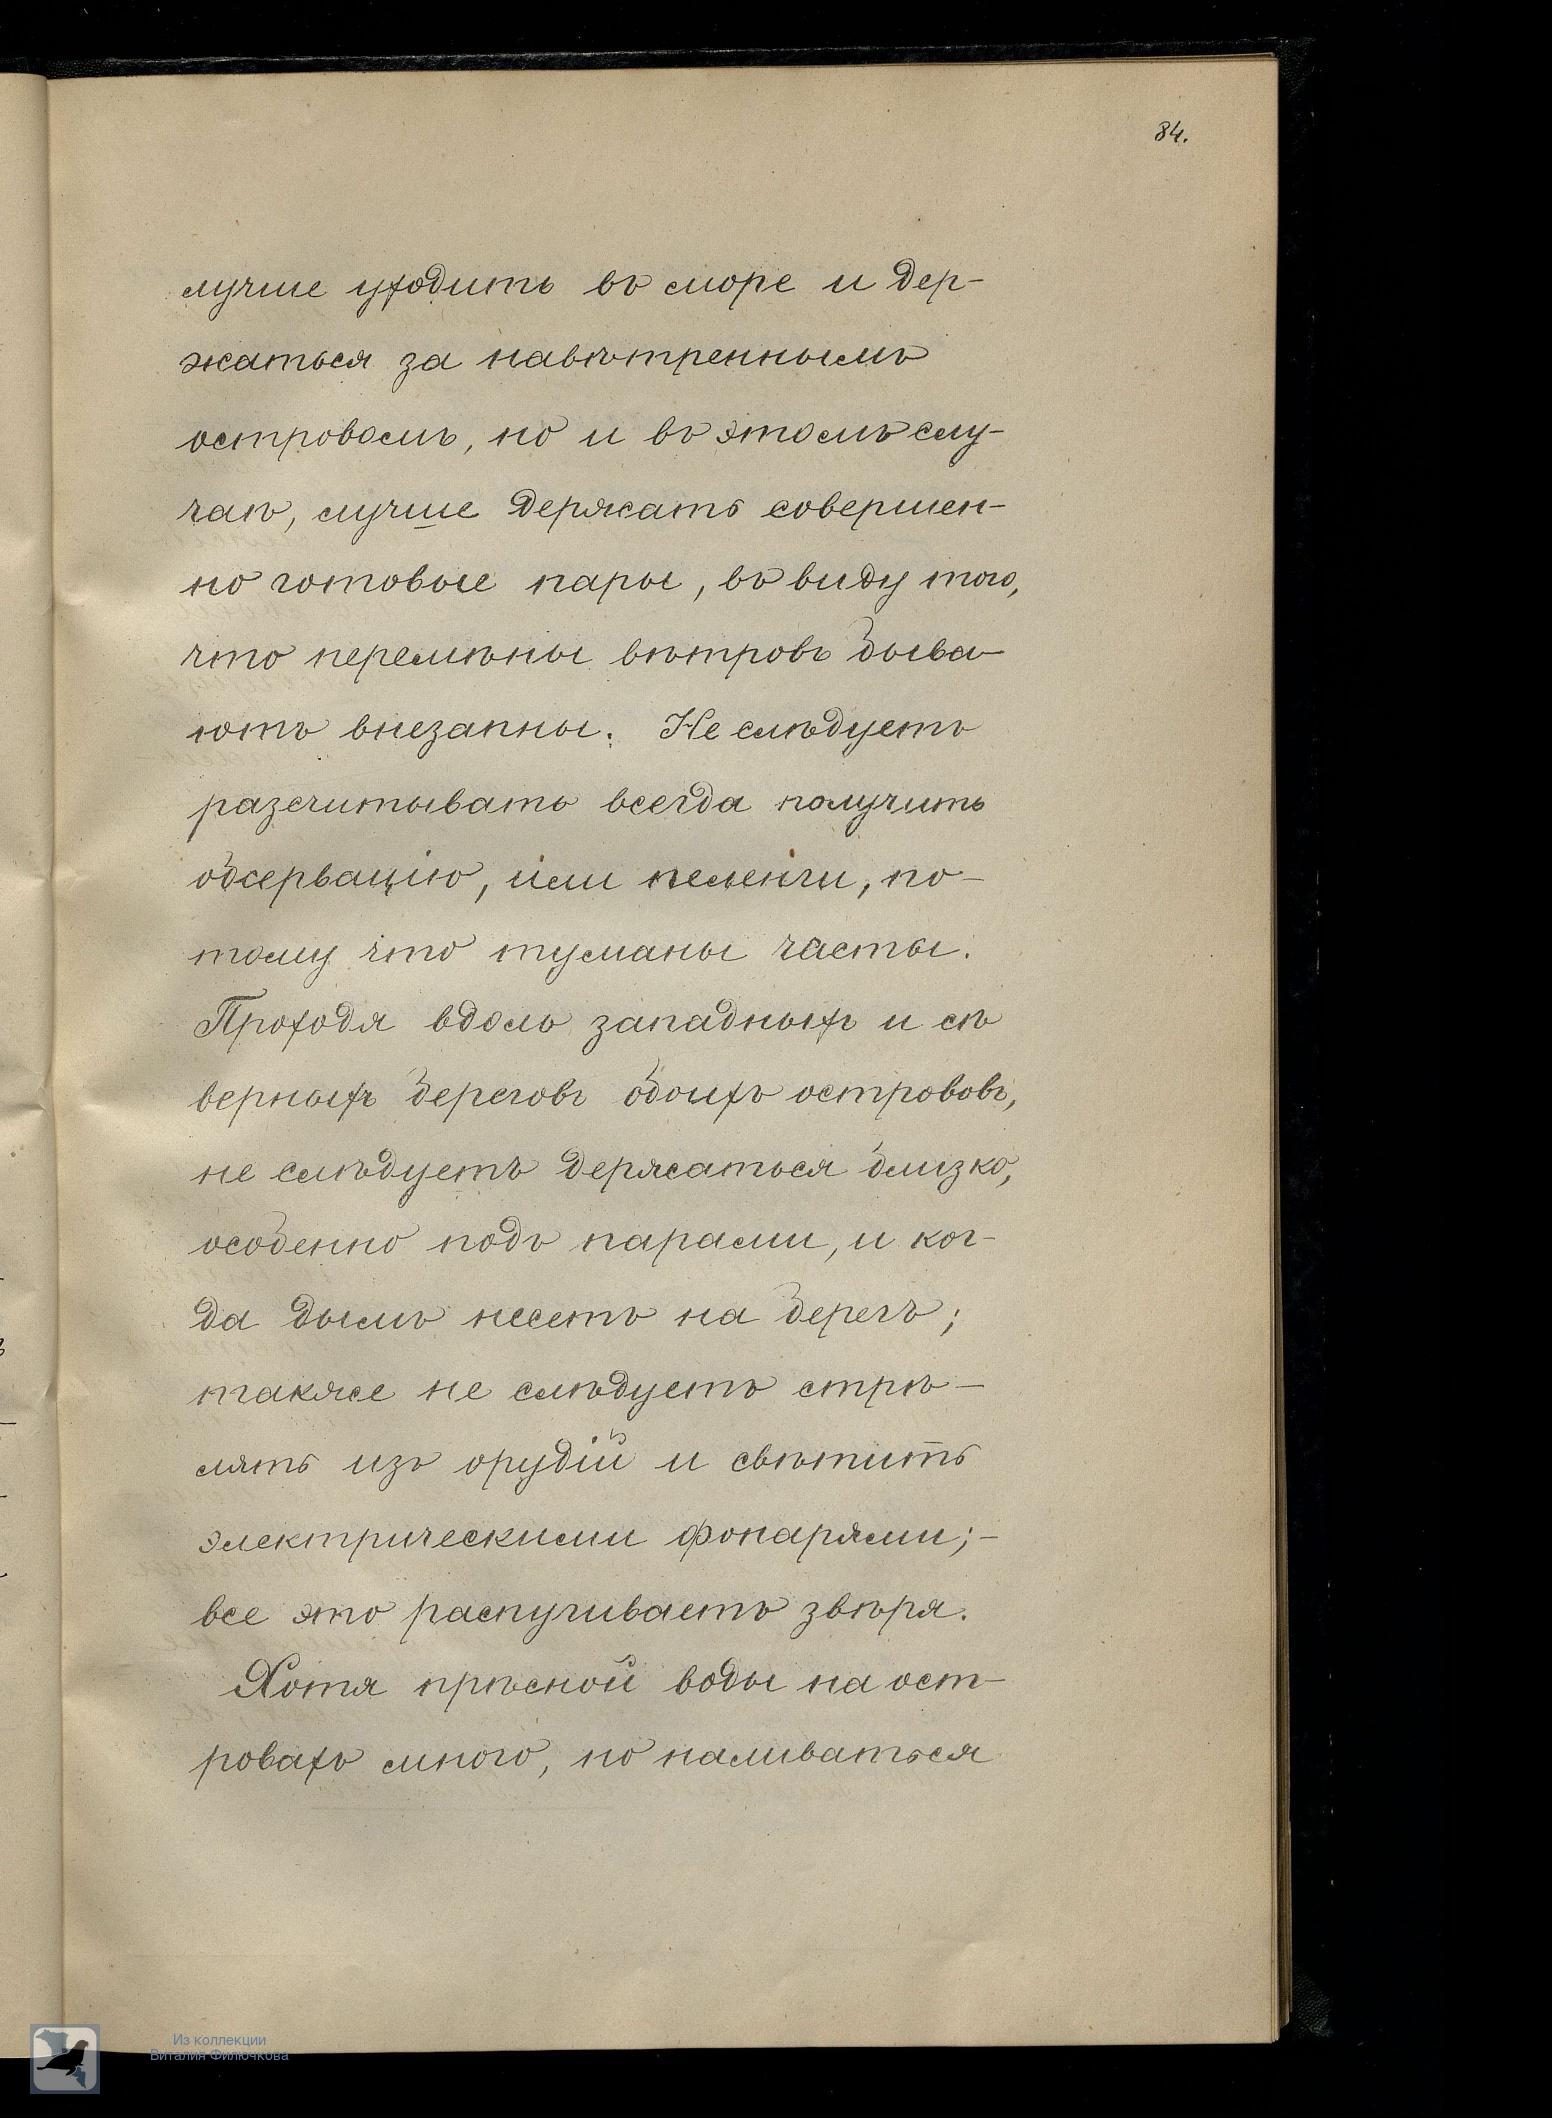 84.
лучше уходить въ море и дер-
жаться за навѣтреннымъ
островомъ, но и въ этомъ слу-
чаѣ, лучше держать совершен-
но готовые пары, въ виду того,
что перемѣны вѣтровъ быва-
ютъ внезапны. Не слѣдуетъ
разсчитывать всегда получить
обсервацію, или пеленги, по-
тому что туманы часты.
Проходя вдоль западныхъ и сѣ
верныхъ береговъ обоихъ острововъ,
не слѣдуетъ держаться близко,
особенно подъ парами, и ког-
да дымъ несетъ на берегъ;
также не слѣдуетъ стрѣ-
лять изъ орудій и свѣтить
электрическими фонарями;-
все это распугиваетъ звѣря.
Хотя прѣсной воды на ост-
ровахъ много, но наливаться
Из коллекции
Виталия Филючкова